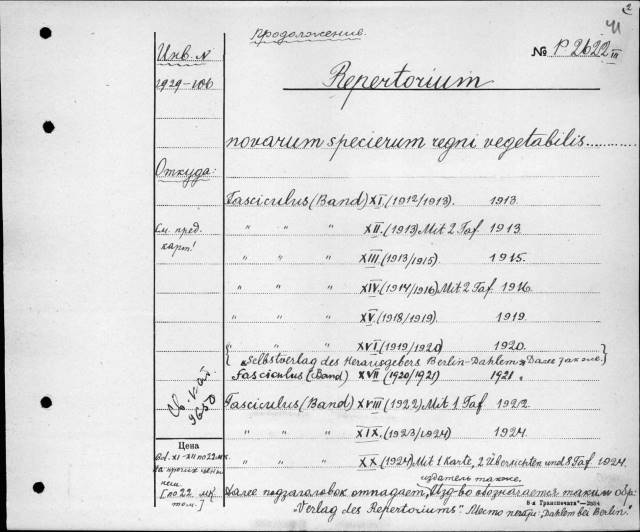 2
Продолжение.
41
Инв. №
№ P 2622 III
1929-106
Repertorium
novarum specierum regni vegetabilis
Откуда:
Fasciculus (Band) XI (1912/1913). 1913.
См. пред. карт!
" " " XII. (1913) Mit 2 Taf 1913.
" " " XIII (1913/1915). 1915.
" " " XIV (1914/1916) Mit 2 Taf 1916.
" " " XV (1918/1919). 1919.
" " " XVI (1919/1920) 1920.
"Selbstverlag des Herausgebers Berlin-Dahlem" Далее
Fasciculus (Band) XVII (1920/1921) 1921.
Fasciculus (Band) XVIII (1922) Mit 1 Taf 1922.
9650
" " " XIX. (1923/1924) 1924.
Цена
Bd. XI-XII по 22 мк.
" " " XX (1924) Mit 1 Karte, 2 Übersichten und 8 Taf. 1924.
издатель также.
[по 22 мк том.]
Далее подзаголовок отпадает, Изд-во обозначается таким обр:
8-я Транспечать
"Verlag des Repertoriums" Место печати: Dahlem bei Berlin.